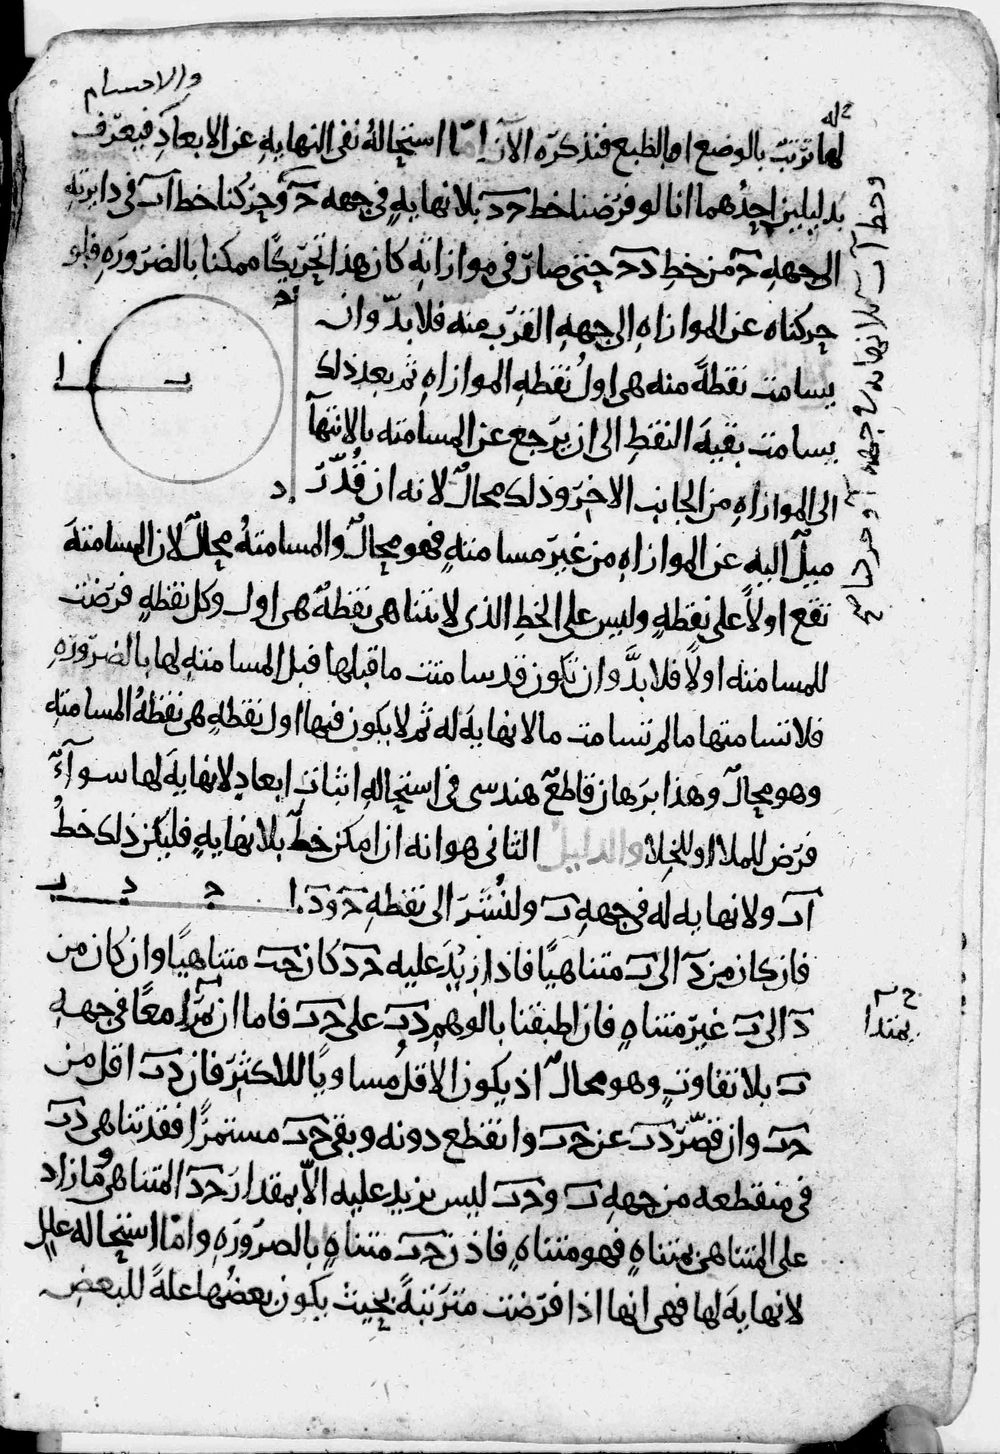 والاجسام
لها ترتب بالوضع او بالطبع فنذكره الآن اما استحالة نفى النهاية عن الابعاد فيعرف
بدليلين احدهما انا لو فرضنا خط حد بلا نهاية فى جهه د وحركنا خط اب فى دايرته
الى جهه د من خط حد حتى صار فى موازاته كان هذا تحريكا ممكنا بالضروره فلو
حركناه عن الموازاه الى جهه القرب منه فلا بد وان
يسامت نقطة منه هى اول نقطه الموازاه ثم بعد ذلك
يسامت بقية النقط الى ان يرجع عن المسامته بالانتهآ
الى الموازاه من الجانب الاخر وذلك محال لانه ان قدر
ميل اليه عن الموازاه من غير مسامتة فهو محال والمسامتة محال لان المسامتة
تقع اولا على نقطه وليس على الخط الذى لا يتناهى نقطة هى اول وكل نقطه فرضت
للمسامته اولا فلا بد وان تكون قد سامتت ما قبلها قبل المسامتة لها بالضروره
فلا تسامتها ما لم تسامت ما لا نهاية له ثم لا يكون فيها اول نقطه هى نقطة المسامته
وهو محال وهذا برهان قاطع هندسى فى استحاله اثبات ابعاد لا نهاية لها سوآء
فرض للملا او للخلا والدليل الثانى هو انه ان امكن خط بلا نهاية فليكن ذلك خط
اب ولا نهايه له فى جهه ب ولنشر الى نقطه ح ود
ا ح د ب
فان كان من د الى ب متناهيا فاذا زيد عليه حد كان حب متناهيا وان كان من
د الى ب غير متناه فان اطبقنا بالوهم دب على حب فاما ان مرا معا فى جهه
ب بلا تفاوت وهو محال اذ يكون الاقل مساويا للاكثر فان دب اقل من
حب وان قصر دب عن حب وانقطع دونه وبقى حب مستمرا فقد تناهى دب
فى منقطعه من جهه ب وحب ليس يزيد عليه الا بمقدار حد المتناهى وما زاد
على المتناهى بمتناه فهو متناه فاذن حب متناه بالضروره واما استحاله علل
لا نهاية لها فهى انها اذا فرضت مترتبة بحيث يكون بعضها علة للبعض
يمتدا